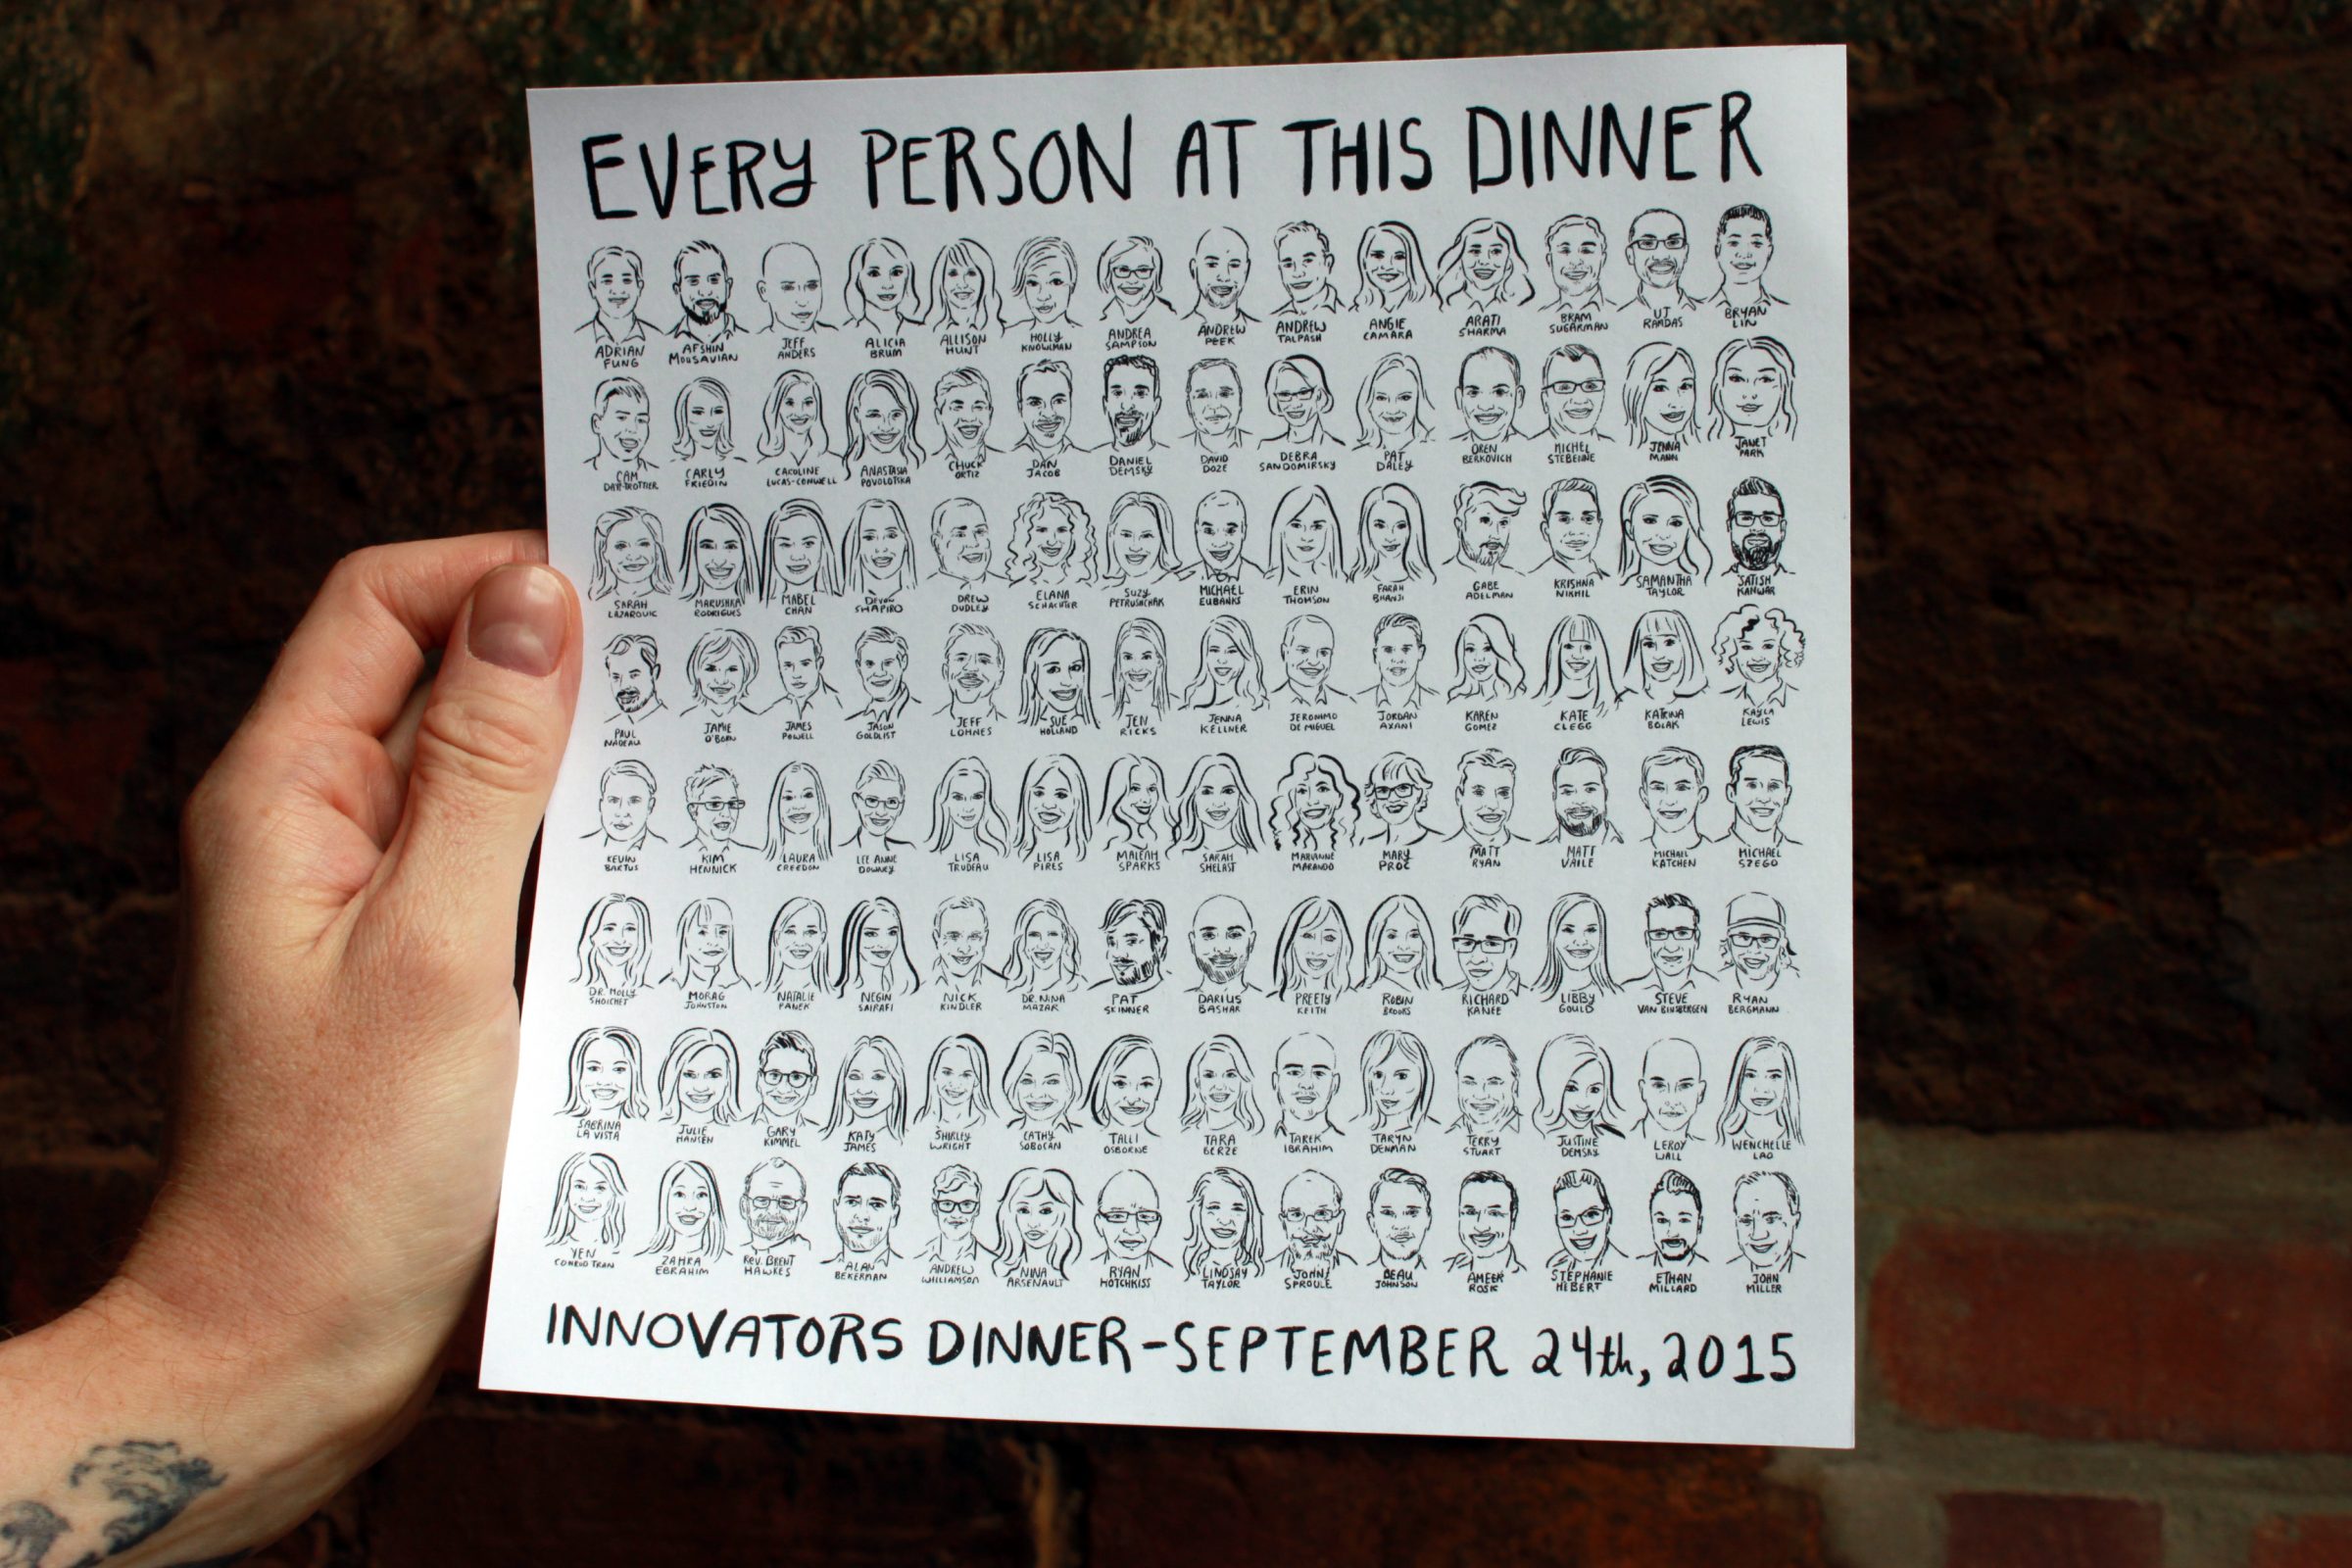 EVERY PERSON AT THIS DINNER
ADRIAN FUNG
AFSHIN MOUSAVIAN
JEFF ANDERS
ALICIA BRUM
ALLISON HUNT
HOLLY KNOWLMAN
ANDREA SAMPSON
ANDREW PEEK
ANDREW TALPASH
ANGIE CAMARA
ARATI SHARMA
BRAM SUGARMAN
UJ RAMDAS
BRYAN LIN
CAM
CARLY FRIEDIN
CAROLINE LUCAS-CONWELL
ANASTASIA
CHUCK ORTIZ
DAN JACOB
DANIEL DEMSKY
DAVID DOZE
DEBRA SANDOMIRSKY
PAT DALEY
OREN BERKOVICH
MICHEL
JENNA MANN
JANET PARK
SARAH LAZAROVIC
MARUSHKA RODRIGUES
MABEL CHAN
DEVON SHAPIRO
DREW DUDLEY
ELANA SCHACHTER
SUZY PETRUSHCHAK
MICHAEL EUBANKS
ERIN THOMSON
FARAH BHANJI
GABE ADELMAN
KRISHNA NIKHIL
SAMANTHA TAYLOR
SATISH KANWAR
PAUL NADEAU
JAMIE O'BORN
JAMES POWELL
JASON GOLDLIST
JEFF LOHNES
SUE HOLLAND
JEN RICKS
JENNA KELLNER
JERONIMO DE MIGUEL
JORDAN AXANI
KAREN GOMEZ
KATE CLEGG
KATRINA BOLAK
KAYLA LEWIS
KEVIN BARTUS
KIM HENNICK
LAURA CREEDON
LEE ANNE DOWNEY
LISA TRUDEAU
LISA PIRES
MALEAH SPARKS
SARAH SHELAST
MARIANNE MARANDO
MARY PROC
MATT RYAN
MATT VAILE
MICHAEL KATCHEN
MICHAEL SZEGO
DR. MOLLY SHOICHET
MORAG JOHNSTON
NATALIE PANEK
NEGIN SAIRAFI
NICK KINDLER
DR. NINA MAZAR
PAT SKINNER
DARIUS BASHAR
PREETY KEITH
ROBIN BROOKS
RICHARD KANEE
LIBBY GOULD
STEVE VAN BINSBERGEN
RYAN BERGMANN
SABRINA LA VISTA
JULIE HANSEN
GARY KIMMEL
KATY JAMES
SHIRLEY WRIGHT
CATHY SOBOCAN
TALLI OSBORNE
TARA BERZE
TAREK IBRAHIM
TARYN DENMAN
TERRY STUART
JUSTINE DEMSKY
LEROY WALL
WENCHELLE LAO
YEN
ZAHRA EBRAHIM
REV. BRENT HAWKES
ALAN BEKERMAN
ANDREW WILLIAMSON
NINA ARSENAULT
RYAN HOTCHKISS
LINDSAY TAYLOR
JOHN SPROULE
BEAU JOHNSON
AMEER ROSIC
STEPHANIE HEBERT
ETHAN MILLARD
JOHN MILLER
INNOVATORS DINNER-SEPTEMBER 24th, 2015